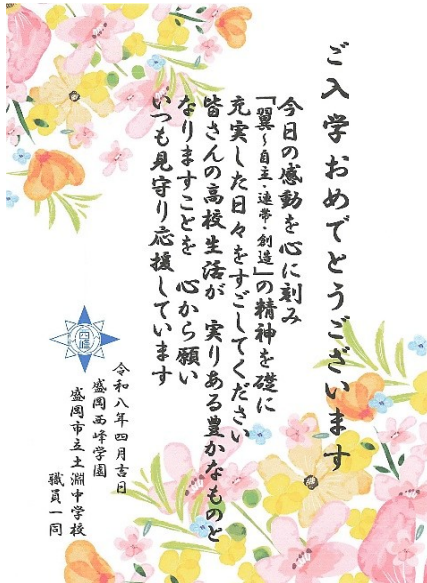 ご入学おめでとうございます
今日の感動を心に刻み
「翼～自主・連帯・創造」の精神を礎に
充実した日々をすごしてください
皆さんの高校生活が　実りある豊かなものと
なりますことを　心から願い
いつも見守り応援しています
令和八年四月吉日
盛岡西峰学園
盛岡市立土淵中学校
職員一同
西峰